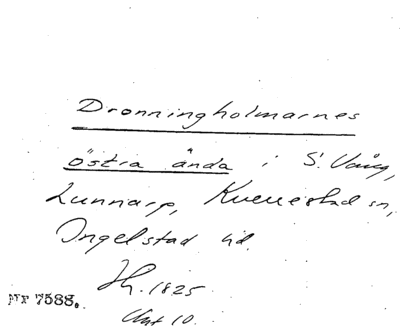 Dronningholmarnes
östra ända i S. Vång,
Lunnarp, Kverrestad sn,
Ingelstad hd.
Sk. 1825
Akt 10.
prr 7588.